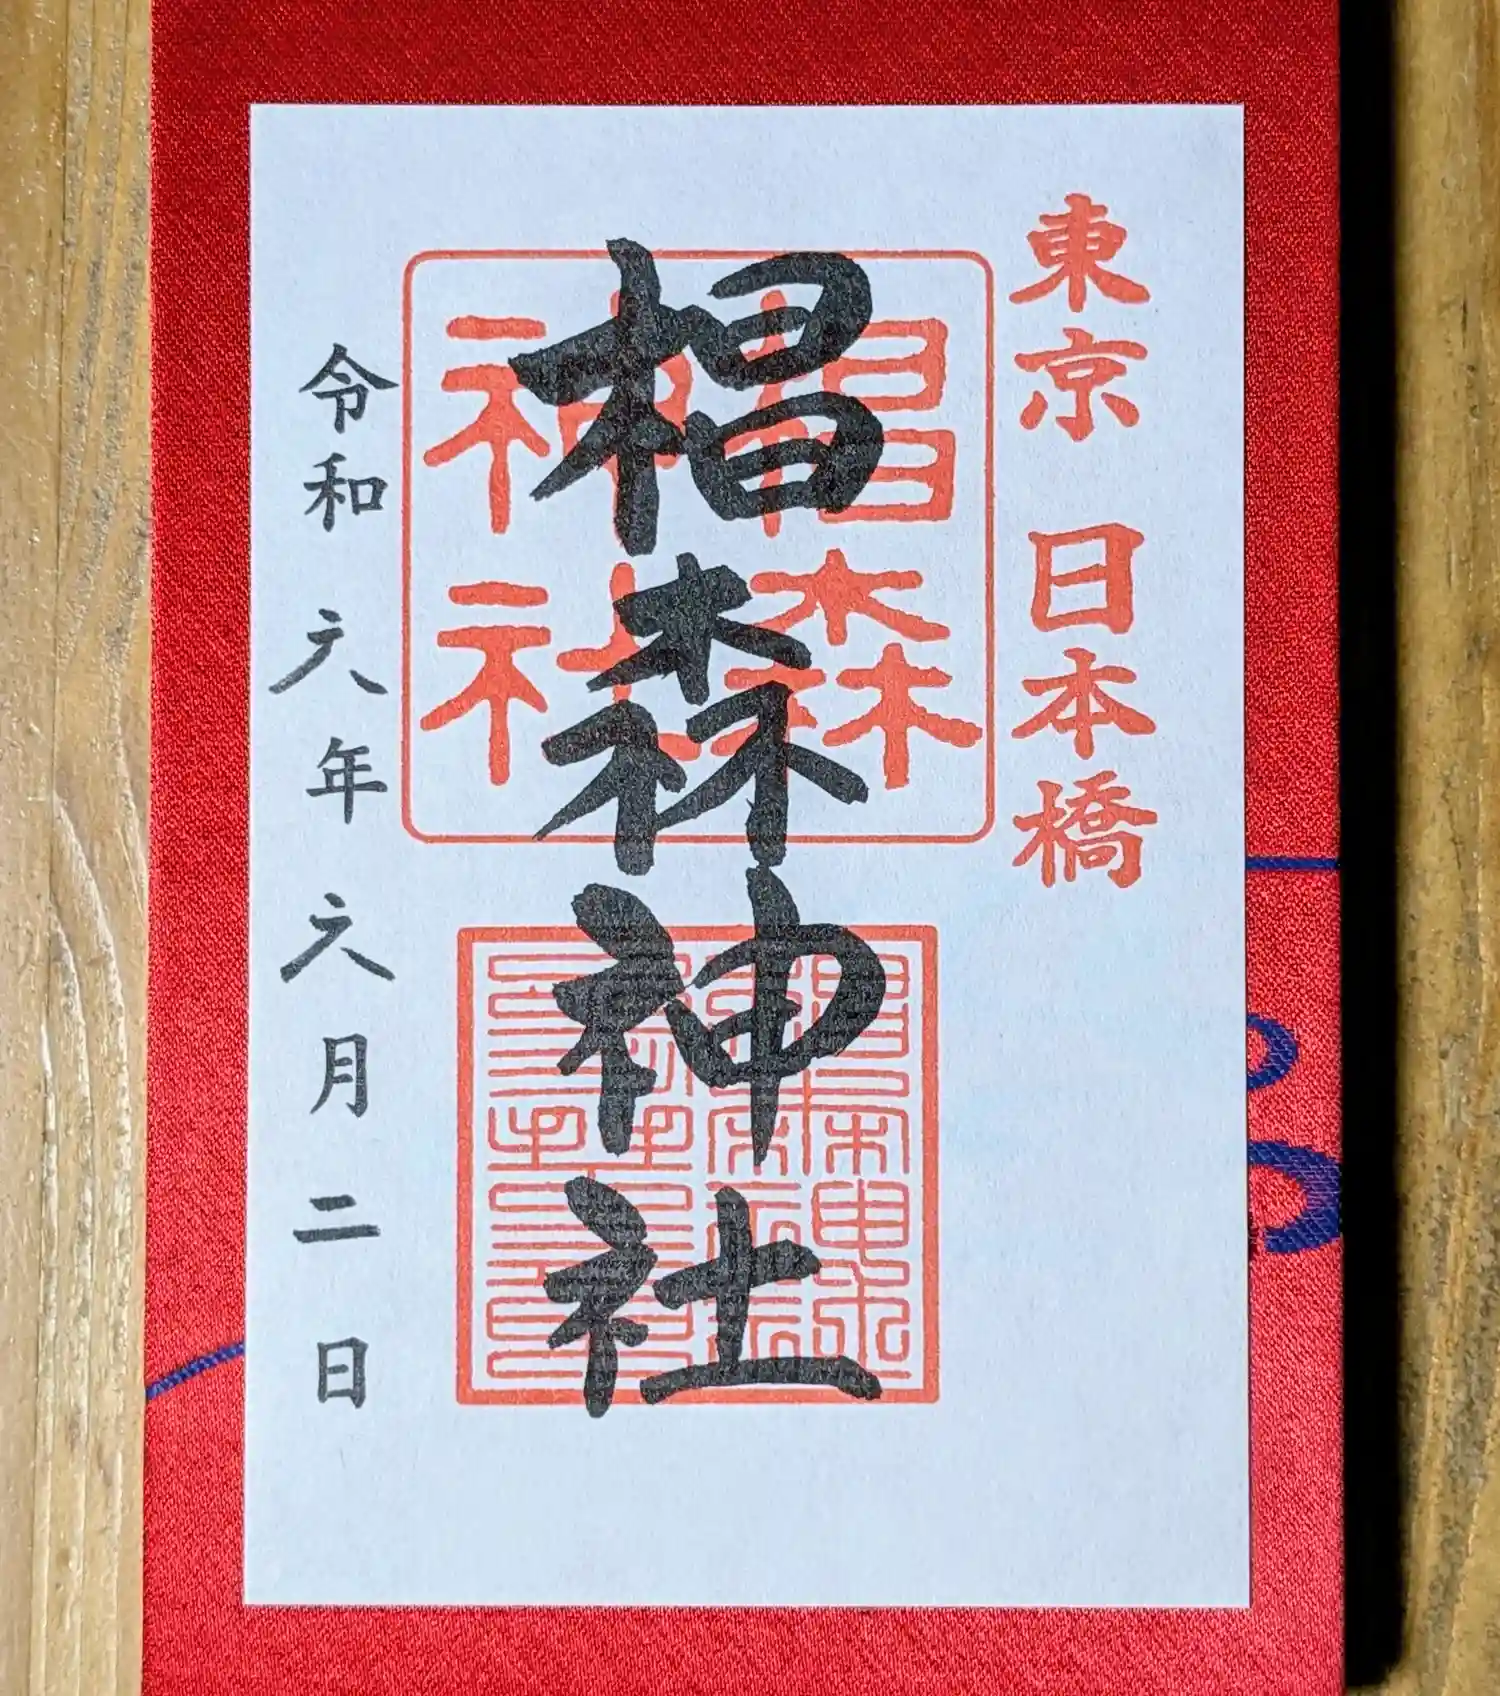 東京 日本橋
椙森神社
椙森
神社
令和六年六月二日